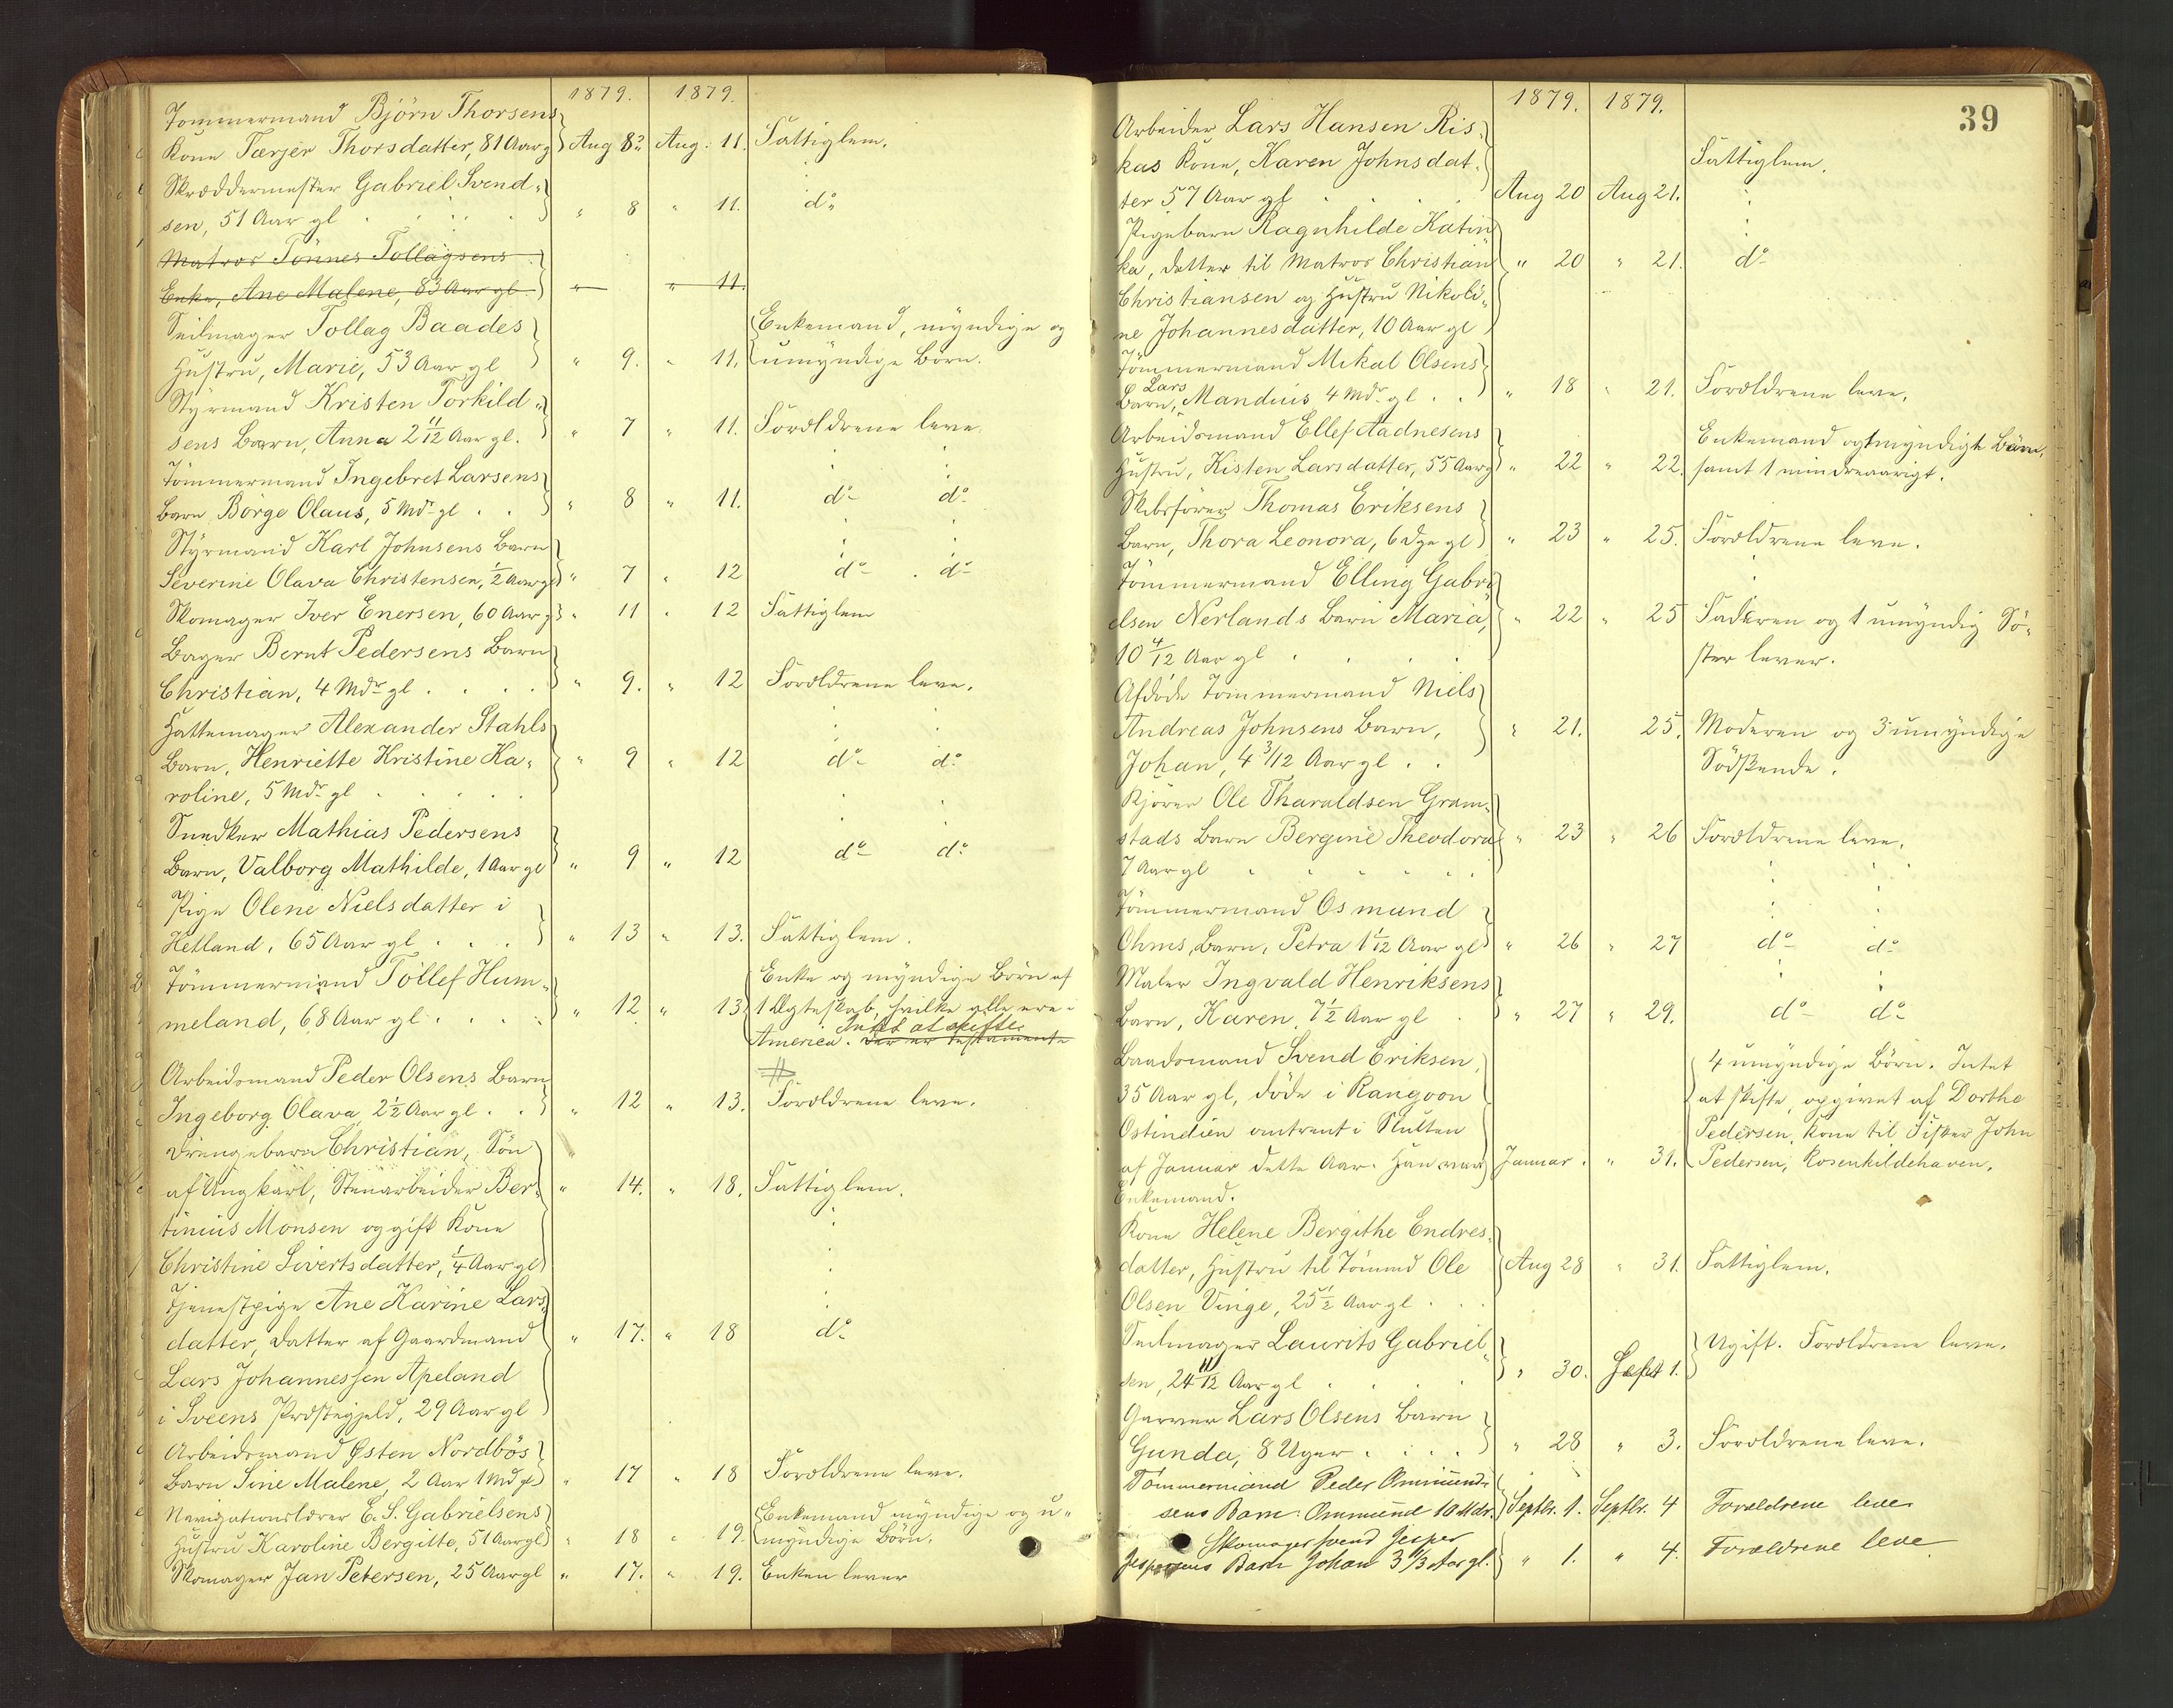 1879. 1879.
Tømmermand Björn Thorsens
Kone Tærjer Thorsdatter, 81 Aar g Aug 8? Aug. 11. Fattiglem.
Skræddermester Gabriel Svend-
sen, 51 Aar gl " 8 " 11. do
Matros Tönnes Tollagsens
Enke, Ane Malene, 83 Aar gl " " 11.
Seilmager Tollag Baades Enkemand, myndige og
Hustru, Marie, 53 Aar gl " 9. " 11. umyndige Børn.
Styrmand Kristen Torkild-
sens Barn, Anna 2 11/12 Aar gl. " 7 " 11. Forældrene leve.
Tømmermand Ingebret Larsens
Barn Börge Olaus, 5 Mdr gl " 8 " 11. do do
Styrmand Karl Johnsens Barn
Severine Olava Christensen, 1/2 Aar gl " 7 " 12 do do
Skomager Iver Enersen, 60 Aar g " 11 " 12 Fattiglem
Bager Bernt Pedersens Barn
Christian, 4 Mdr gl " 9. " 12 Forældrene leve.
Hattemager Alexander Stahls
Barn, Henriette Kristine Ka- " 9 " 12 do do
roline, 5 Mdr gl
Snedker Mathias Pedersens
Barn, Valborg Mathilde, 1 Aar gl " 9 " 12 do do
Pige Olene Nielsdatter i
Hetland, 65 Aar gl " 13 " 13. Fattiglem.
Tömmermand Tollef Hum- Enke og myndige Börn af
meland, 68 Aar gl " 12 " 13 1 Ægteskab, hvilke alle ere i
Intet at skifte
America. Der er testamente
Arbeidsmand Peder Olsens Barn
Ingeborg Olava 2 1/2 Aar gl " 12 " 13. Forældrene leve.
Drengebarn Christian, Sön
af Ungkarl, Stenarbeider Ber- " 14. " 18. Fattiglem.
tinius Monsen og gift Kone
Christine Sivertsdatter, 1/4 Aar gl
Tjenestpige Ane Karine Lars-
datter, Datter af Gaardmand " 17. " 18 do
Lars Johannessen Apeland
i Sveens Præstegjeld, 29 Aar gl
Arbeidsmand Østen Nordbös
Barn Sine Malene, 2 Aar 1 Md gl " 17 " 18 Forældrene leve.
Navigationslærer E. S. Gabrielsens Enkemand myndige og u-
Hustru Karoline Bergitte, 51 Aar gl " 18 " 19. myndige Börn.
Skomager Jan Petersen, 25 Aar gl " 17. " 19. Enken lever
39
1879. 1879.
Arbeider Lars Hansen Ris-
kas Kone, Karen Johnsdat- Fattiglem.
ter 57 Aar gl Aug 20 Aug 21.
Pigebarn Ragnhilde Katin-
ka, Datter til Matros Christian " 20 " 21. do
Christiansen og Hustru Nikoli-
ne Johannesdatter, 10 Aar gl
Tömmermand Mikal Olsens
Lars
Barn, Mandius 4 Mdr gl " 18 " 21. Forældrene leve.
Arbeidsmand Ellef Aadnesens Enkemand og 1 myndigt Barn,
Hustru, Kisten Larsdatter, 55 Aar g " 22 " 22. samt 1 mindreaarigt.
Skibsförer Thomas Eriksens
Barn, Thora Leonora, 6 Dge gl " 23 " 25. Forældrene leve.
Tömmermand Elling Gabri-
elsen Nerlands Barn Maria, " 22 " 25 Faderen og 1 umyndig Sö-
10 4/12 Aar gl ster lever.
Afdöde Tömmermand Niels
Andreas Johnsens Barn, " 21. 25. Moderen og 3 umyndige
Johan, 4 3/12 Aar gl Södskende.
Kjører Ole Tharaldsen Gram-
stads Barn Bergine Theodora " 23 " 26 Forældrene leve.
7 Aar gl
Tömmermand Osmund
Ohms, Barn, Petra 1 1/12 Aar gl " 26 " 27 do do
Maler Ingvald Henriksens
Barn, Karen, 7 1/2 Aar gl " 27 " 29. do do
Baadsmand Svend Eriksen, 4 umyndige Börn. Intet
35 Aar gl, döde i Rangoon at skifte, opgivet af Dorthe
Ostindien omtrent i Slutten Pedersen, Kone til Fisker John
af Januar dette Aar. Han var Januar. " 31. Pedersen, Rosenkildehaven.
Enkemand.
Kone Helene Bergithe Endres-
datter, Hustru til Tömmd Ole Aug 28 " 31. Fattiglem.
Olsen Vinge, 25 1/2 Aar gl
Seilmager Laurits Gabriel- Ugift. Forældrene leve.
sen, 24 11/12 Aar gl " 30. Sept 1.
Garver Lars Olsens Barn
Gunda, 8 Uger " 28 " 3. Forældrene leve.
Tömmermand Peder Ommund-
sens Barn Ommund 10 Mdr. Septbr. 1. Septbr. 4 Forældrene leve
Skomagersvend Jesper
Jespersens Barn Johan 3 1/3 Aar gl. " 1. " 4. Forældrene leve